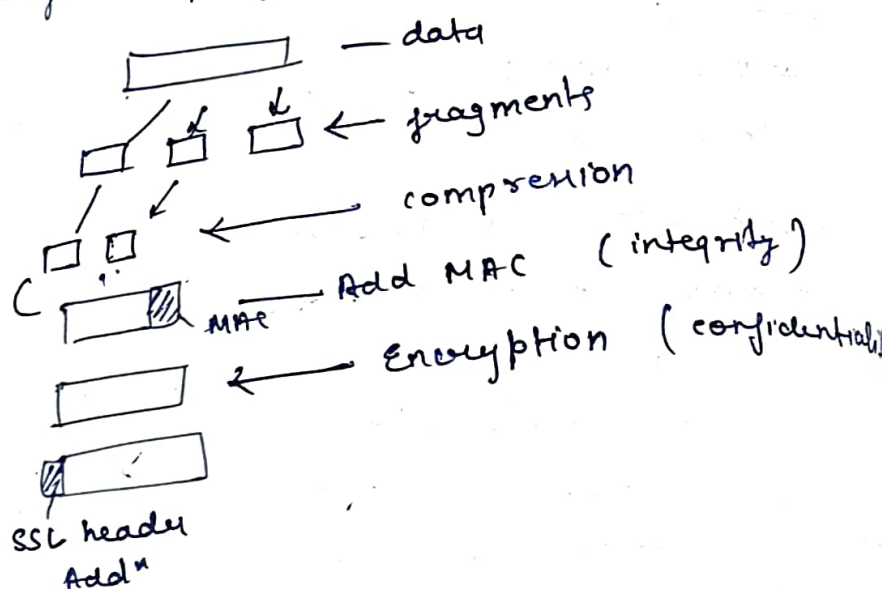 data
fragments
compression
Add MAC (integrity)
MAC
Encryption (confidentiali
SSL header
Addⁿ